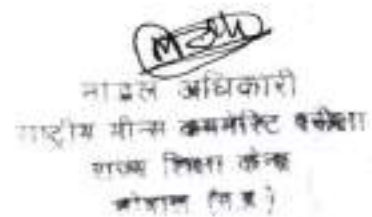 नोडल अधिकारी
राष्ट्रीय मीन्स कममेरिट परीक्षा
राज्य शिक्षा केन्द्र
भोपाल (म.प्र.)